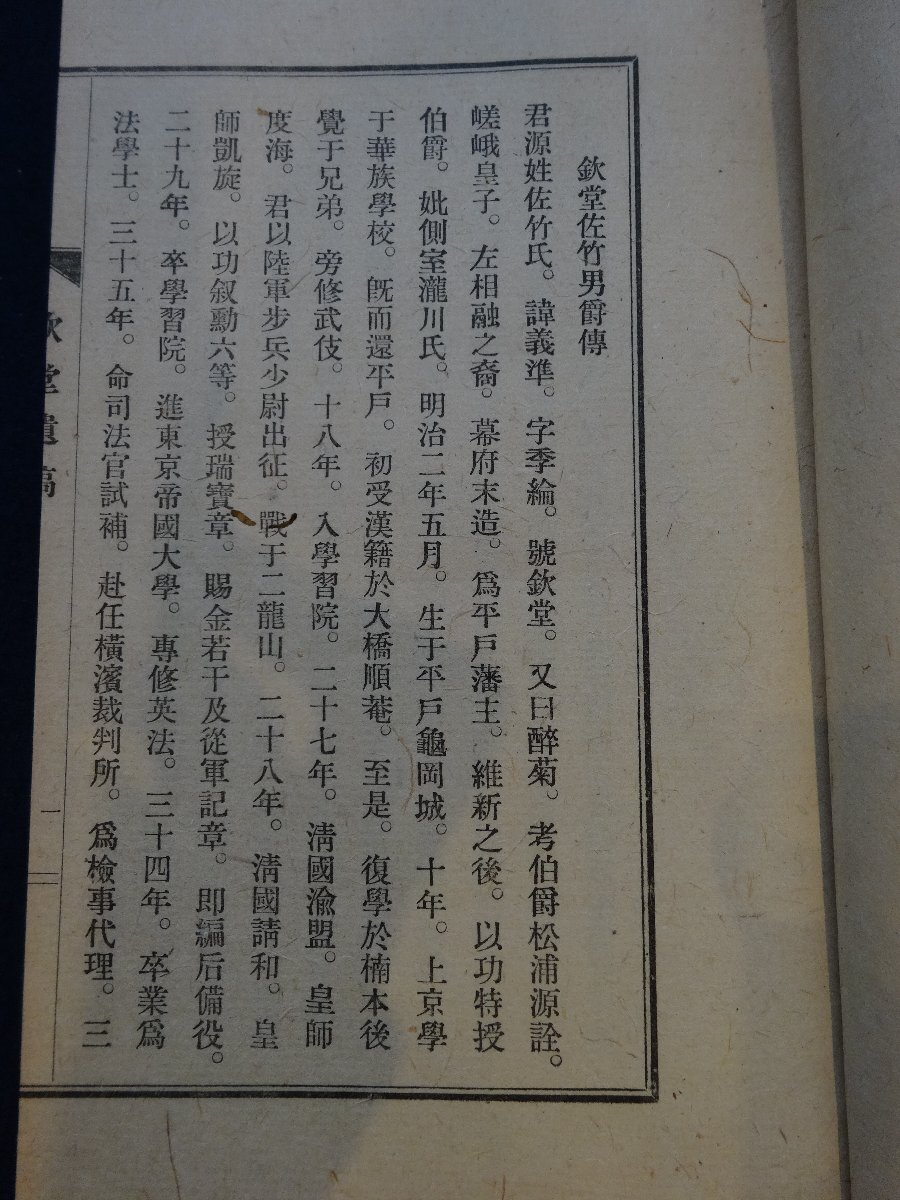 欽堂佐竹男爵傳
君源姓佐竹氏。諱義準。字季綸。號欽堂。又曰醉菊。考伯爵松浦源詮。
嵯峨皇子。左相融之裔。幕府末造。爲平戶藩主。維新之後。以功特授
伯爵。妣側室瀧川氏。明治二年五月。生于平戶龜岡城。十年。上京學
于華族學校。旣而還平戶。初受漢籍於大橋順菴。至是。復學於楠本後
覺于兄弟。旁修武伎。十八年。入學習院。二十七年。淸國渝盟。皇師
度海。君以陸軍步兵少尉出征。戰于二龍山。二十八年。淸國請和。皇
師凱旋。以功叙勳六等。授瑞寶章。賜金若干及從軍記章。即編后備役。
二十九年。卒學習院。進東京帝國大學。專修英法。三十四年。卒業爲
法學士。三十五年。命司法官試補。赴任橫濱裁判所。爲檢事代理。三
欽堂遺稿
一